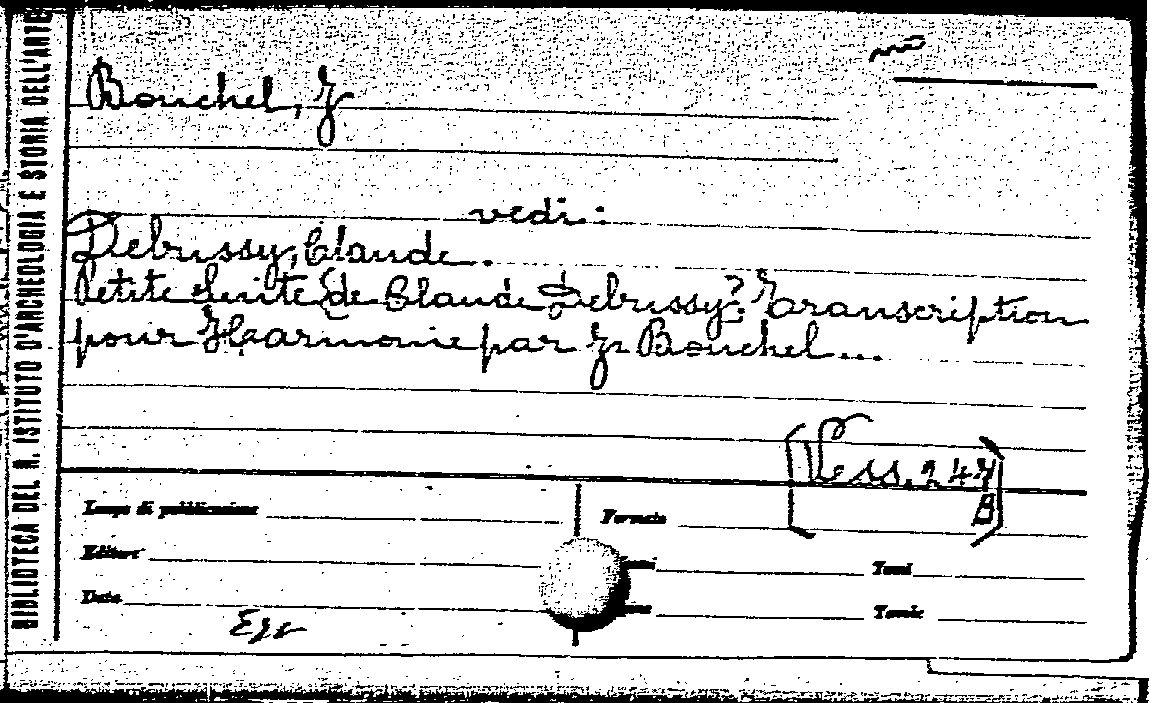 BIBLIOTECA DEL R. ISTITUTO D'ARCHEOLOGIA E STORIA DELL'ARTE
mus
Bouchel, J
vedi:
Debussy, Claude.
Petite Suite de Claude Debussy. Transcription
pour Harmonie par J. Bouchel...
[Vess. 247
B]
Luogo di pubblicazione
Formato
Editore
Tomi
Data
Tavole